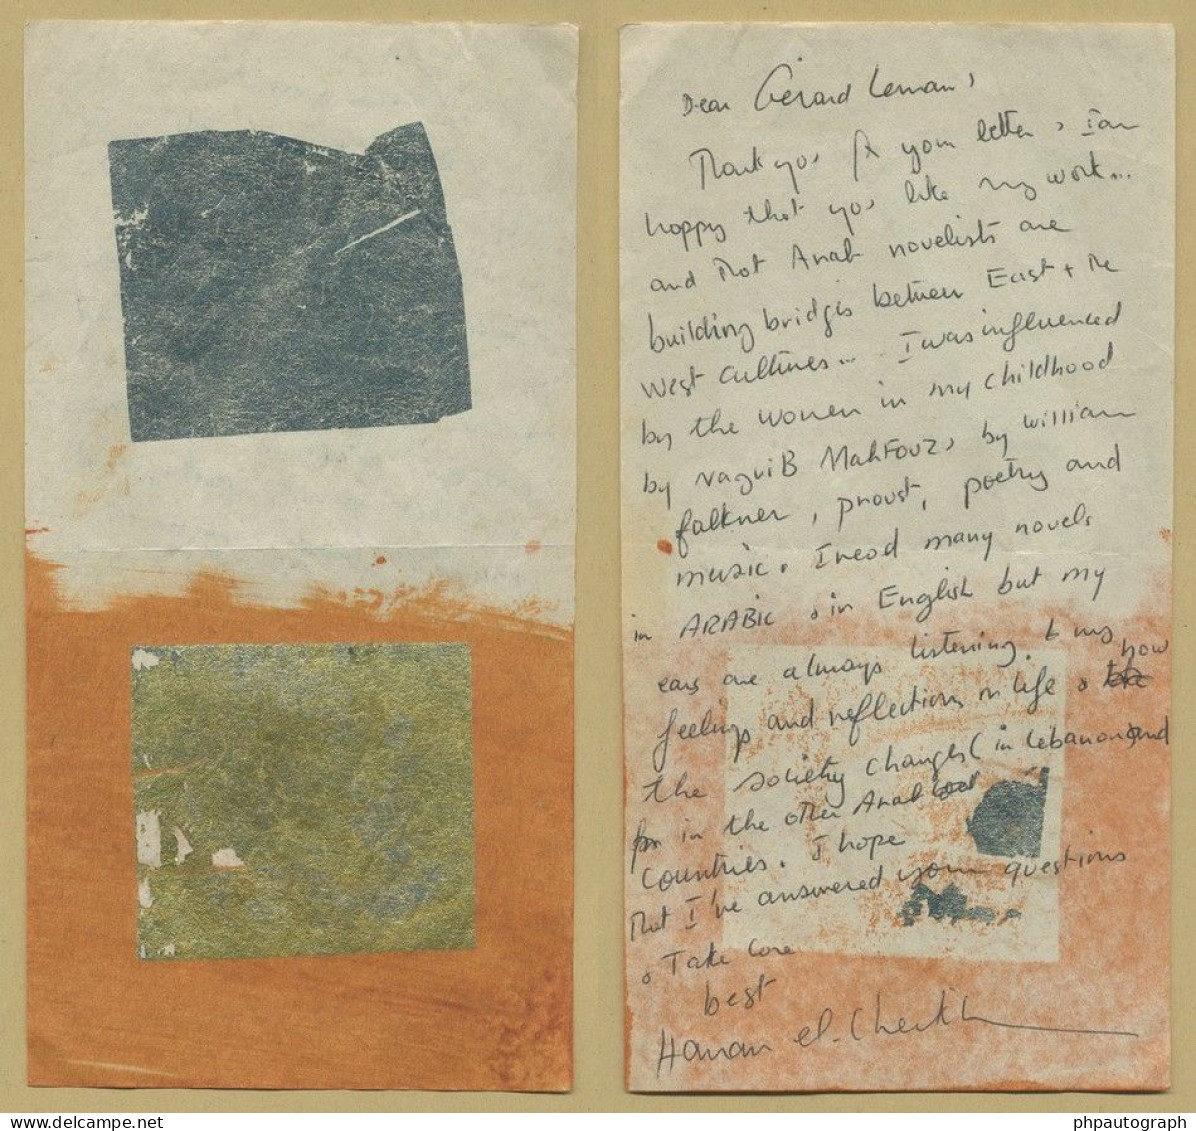 Dear Gérard Leman,
Thank you for your letter, I am
happy that you like my work...
and that Arab novelists are
building bridges between East + the
West cultures... I was influenced
by the women in my childhood
by Naguib Mahfouz, by William
Falkner, proust, poetry and
music. I read many novels
in ARABIC & in English but my
ears are always listening. to my
feelings and reflections on life & how
the society changes (in Lebanon) and
in the other Arab
countries. I hope
That I've answered your questions
& Take care
best
Hanan el-Cheikh
phpautograph